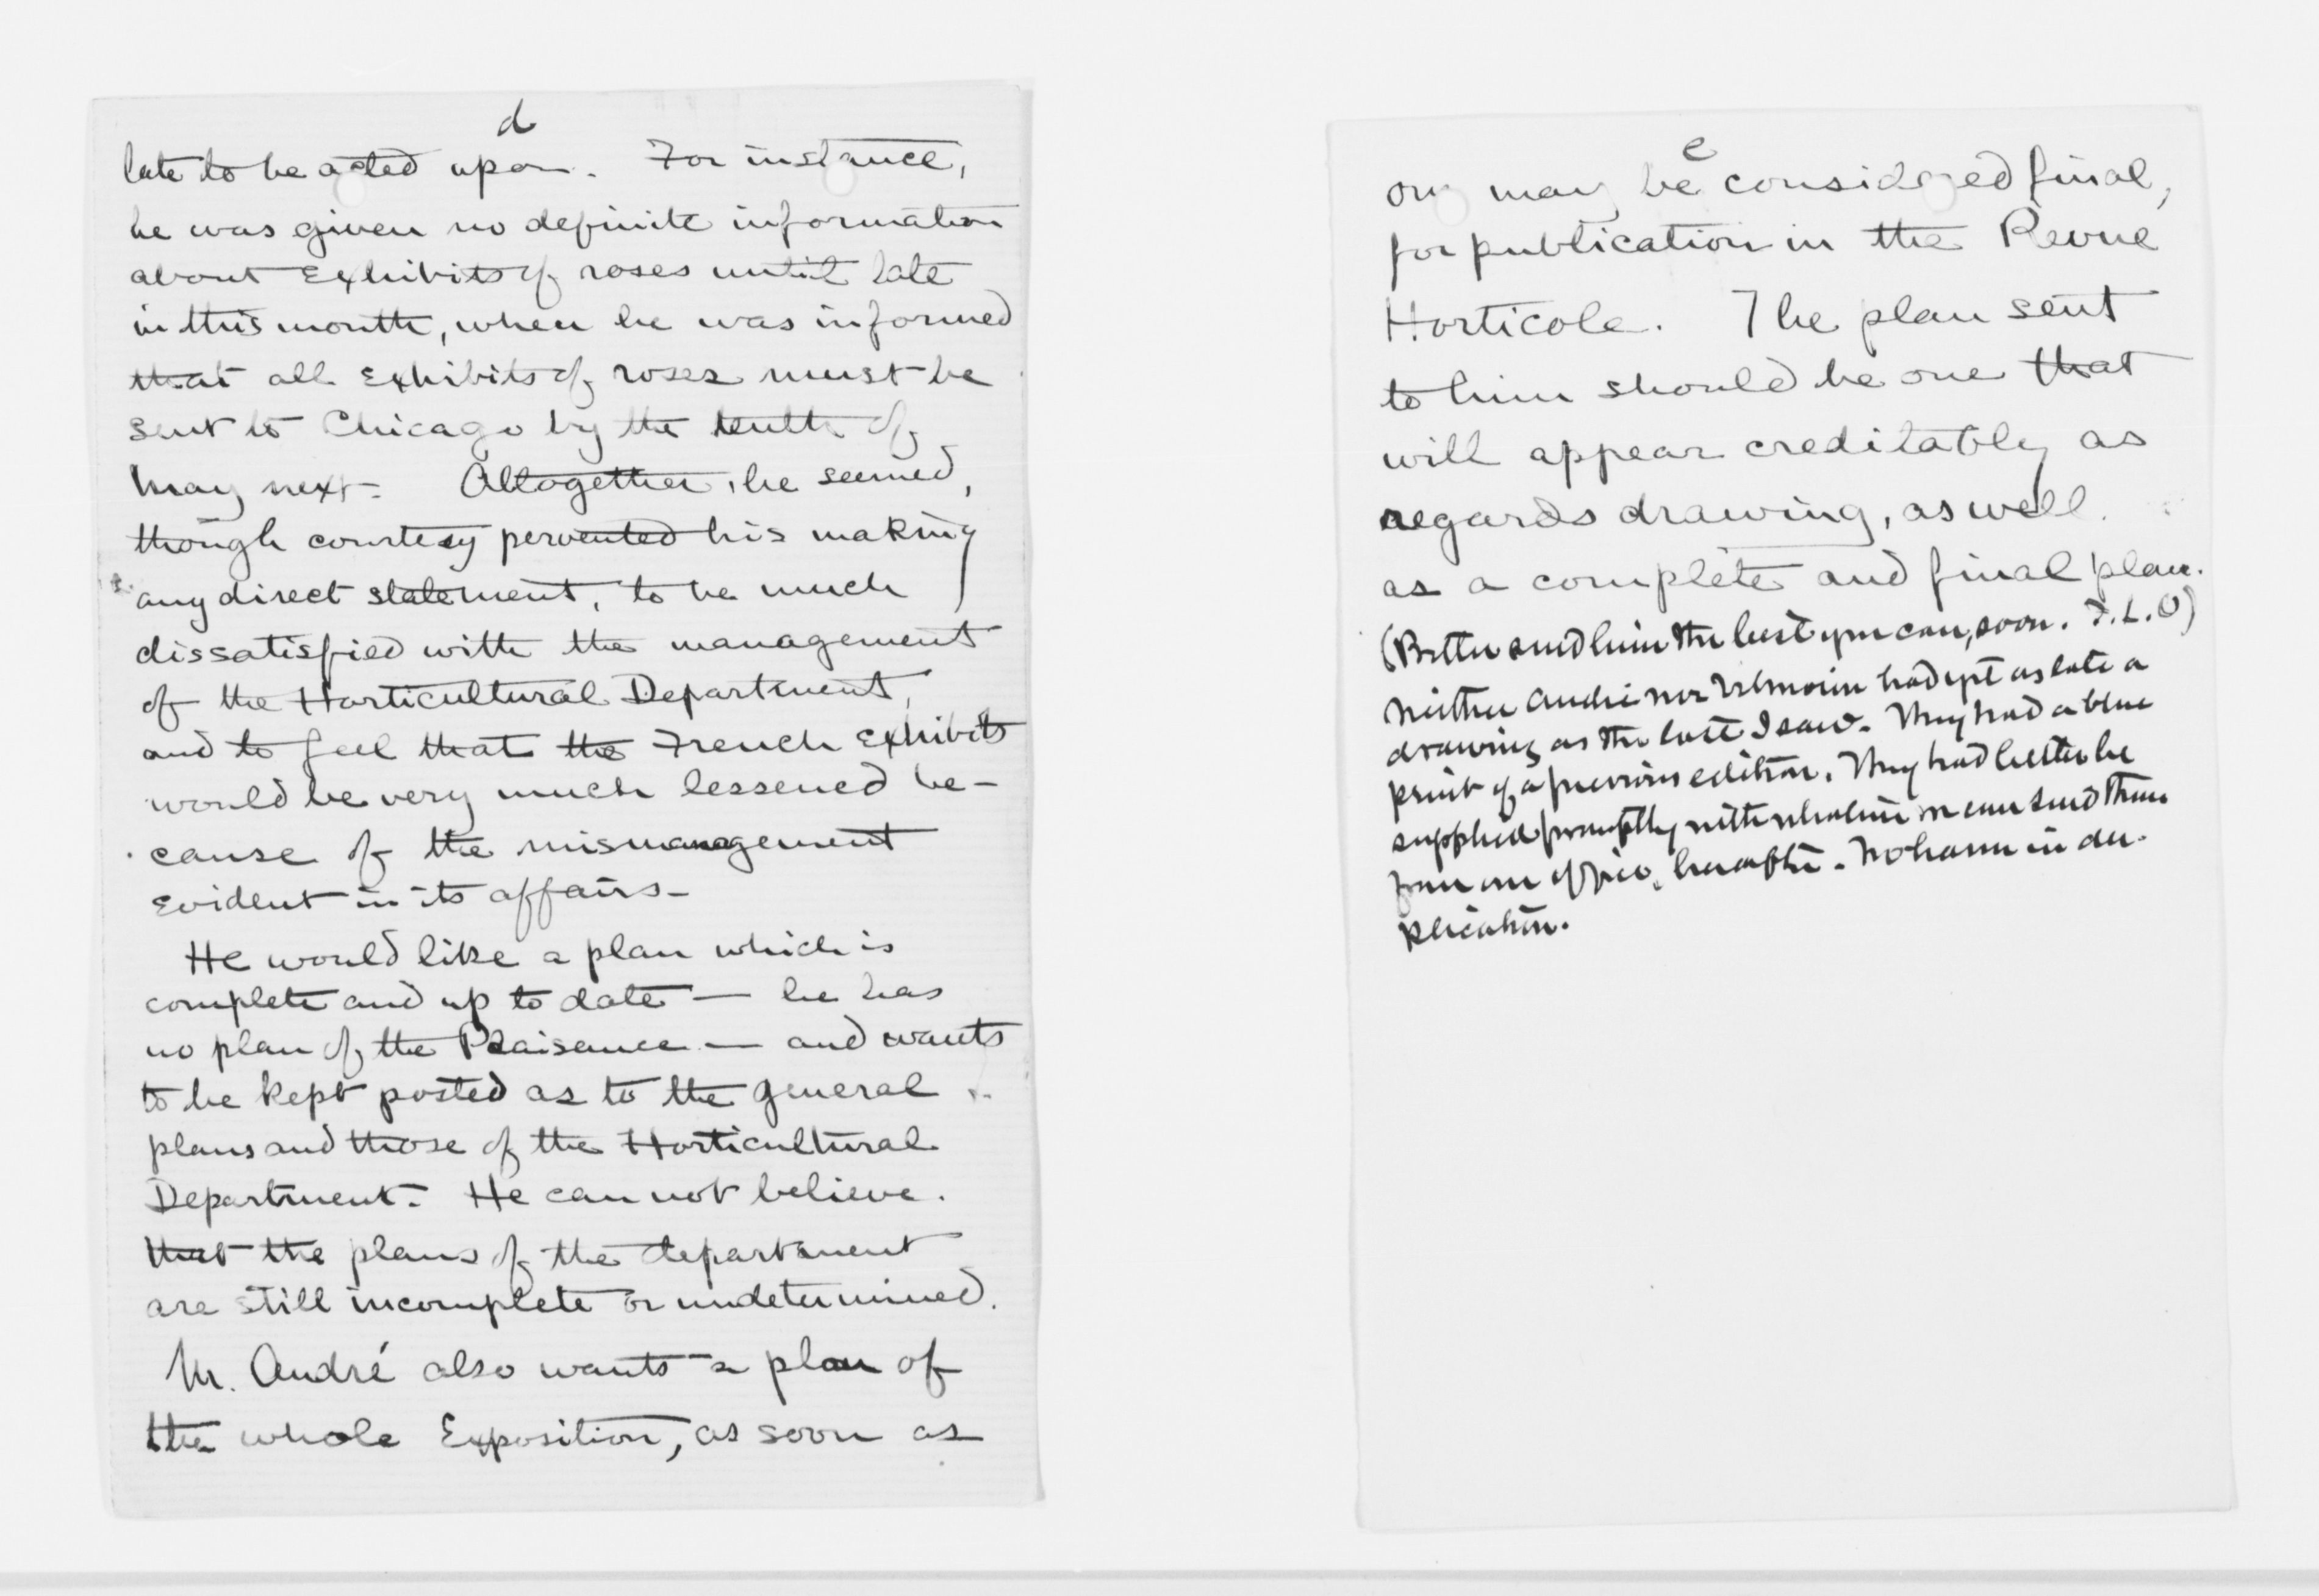 d
late to be acted upon. For instance,
he was given no definite information
about exhibits of roses until late
in this month, when he was informed
that all exhibits of roses must be
sent to Chicago by the tenth of
May next. Altogether, he seemed,
though courtesy pervented his making
any direct statement, to be much
dissatisfied with the management
of the Horticultural Department,
and to feel that the French exhibits
would be very much lessened be-
cause of the mismanagement
evident in its affairs.
He would like a plan which is
complete and up to date — he has
no plan of the Plaisance — and wants
to be kept posted as to the general
plans and those of the Horticultural
Department. He can not believe
that the plans of the department
are still incomplete or undetermined.
Mr. André also wants a plan of
the whole Exposition, as soon as
e
one may be considered final,
for publication in the Revue
Horticole. The plan sent
to him should be one that
will appear creditably as
regards drawing, as well
as a complete and final plan.
(Better send him the best you can, soon. F.L.O)
Neither André nor Vilmorin had yet as late a
drawing as the last I saw. They had a blue
print of a previous edition. They had better be
supplied promptly with whatever we can send them
from our office, hereafter. No harm in du-
plication.